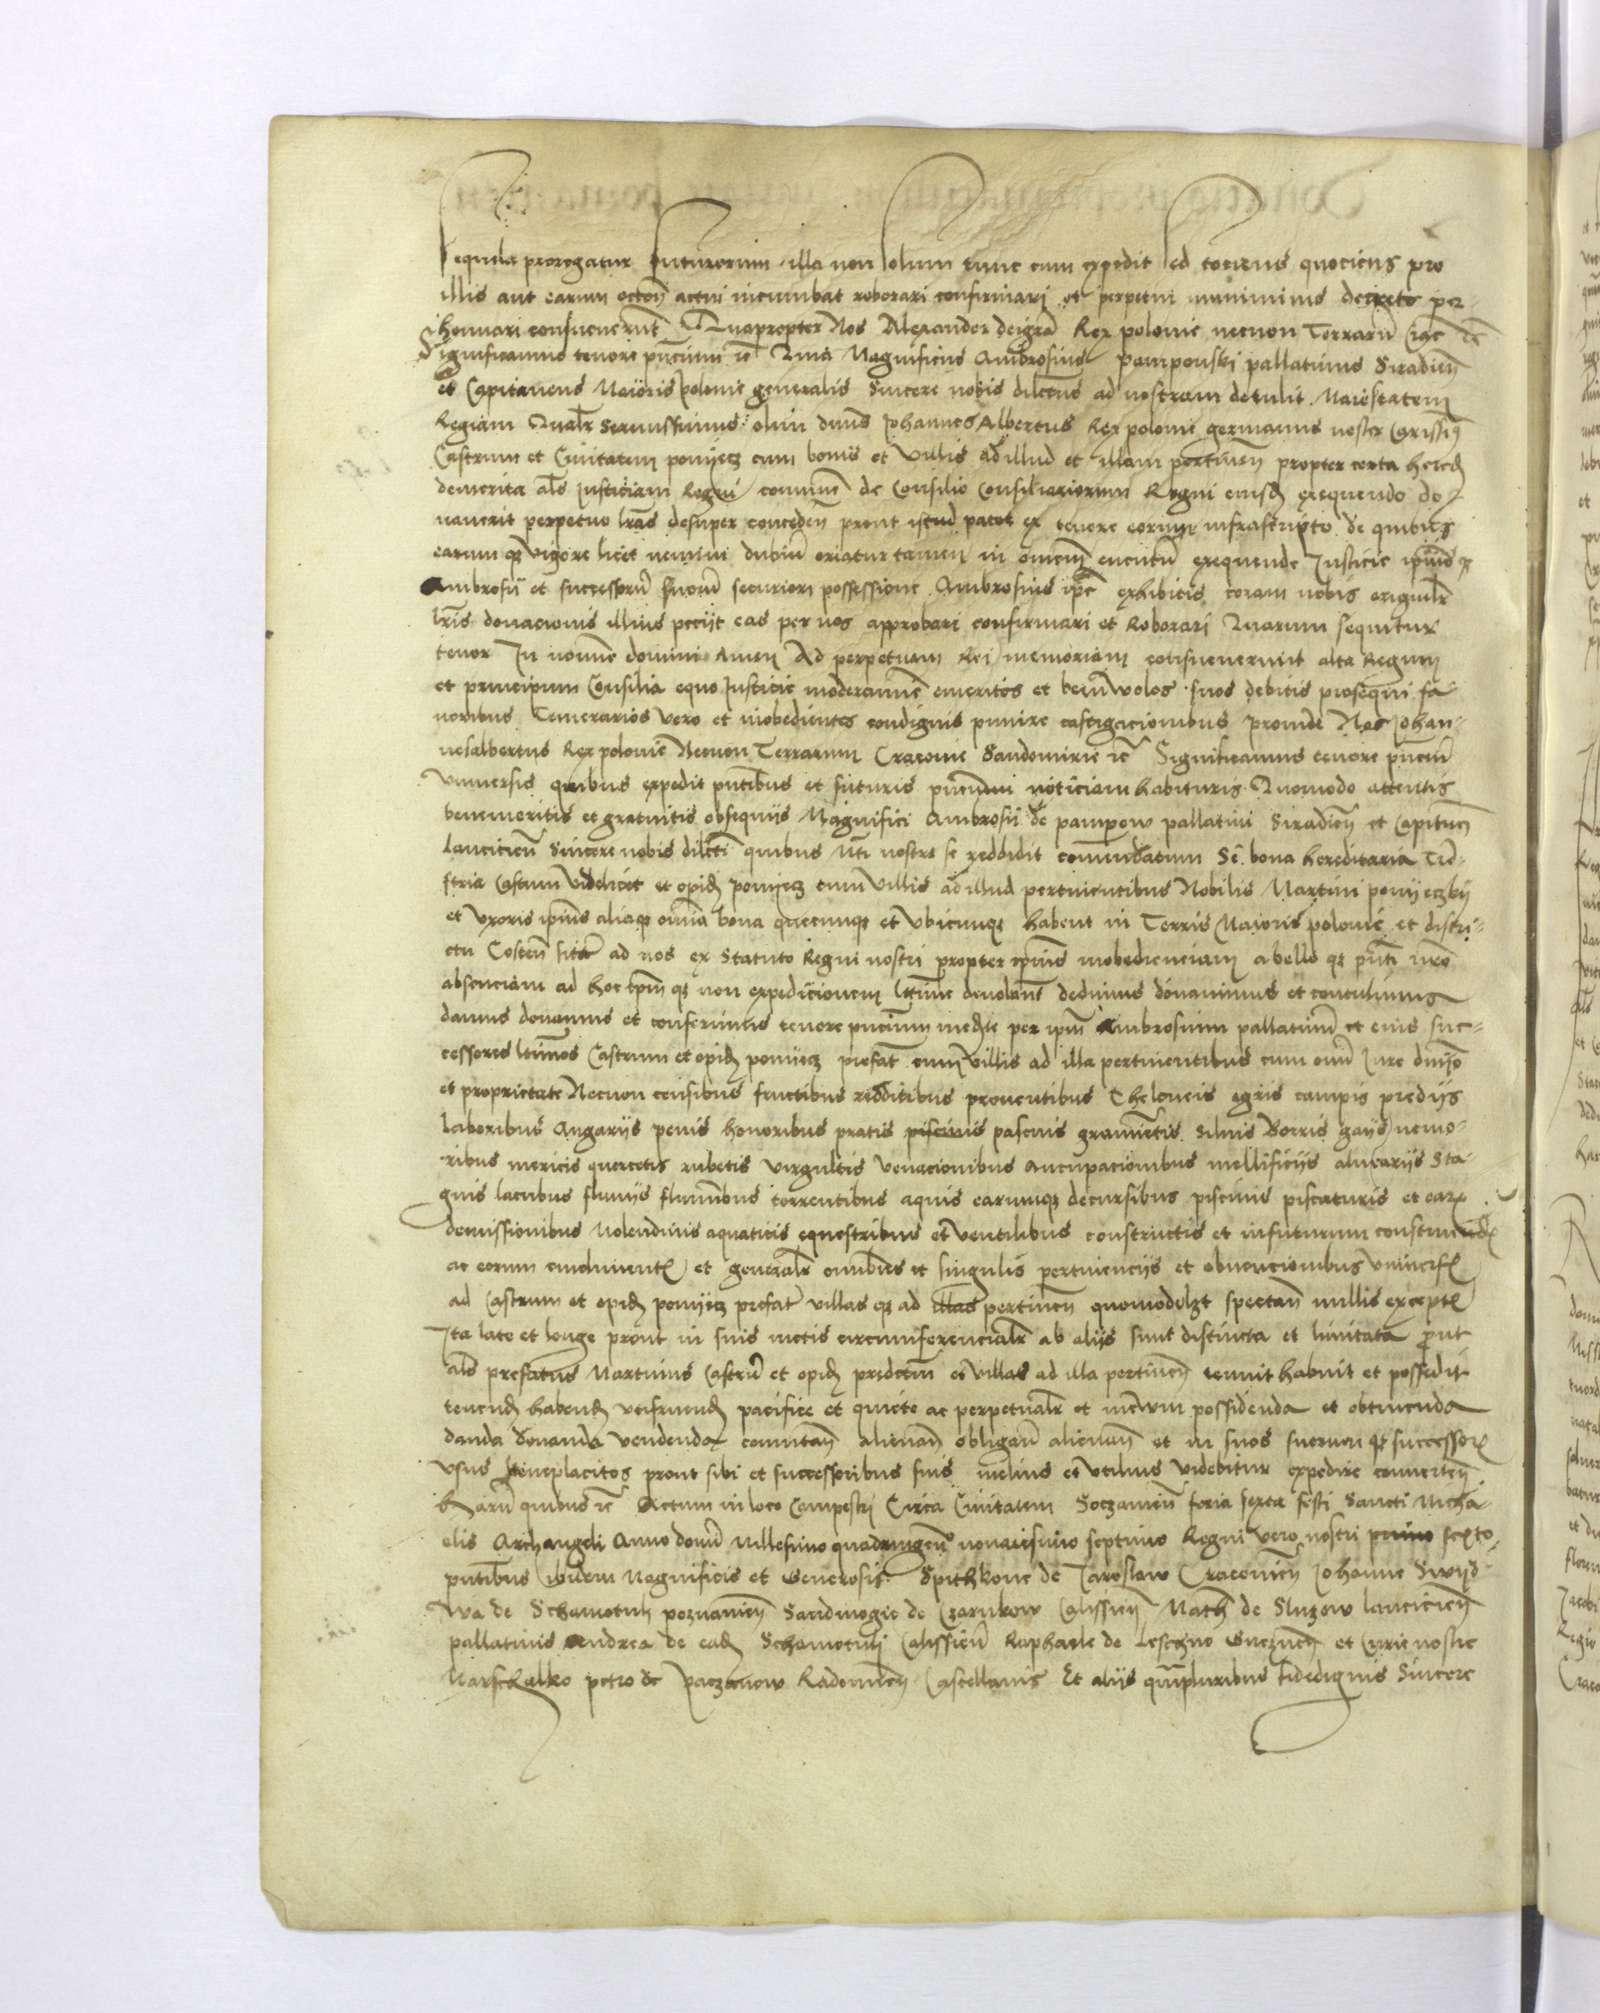 sequela prorogatur futurorum illa non solum tunc cum expedit sed tociens quociens pro
illis aut earum actui incumbat roborari confirmari et perpetui muniminis decreto per-
hennari consueverunt Quapropter Nos Alexander dei gra Rex polonie necnon Terrarum Crac etc
Significamus tenore pntium etc Quia Magnificus Ambrosius pampowski pallatinus Siradien
et Capitaneus Maioris polonie generalis Sincere nobis dilectus ad nostram detulit Maiestatem
Regiam Qualr serenissimus olim dnus Johannes Albertus Rex polonie germanus noster Carissi
Castrum et Civitatem ponyecz cum bonis et villis ad illud et illam pertinen propter certa hered
demerita als Justiciam Regni commune de Consilio Consiliariorum Regni eiusd exequendo do-
naverit perpetuo lras desuper conceden prout istud patet ex tenore eorum infrascripto de quibus
earum qz vigore licet nemini dubium oriatur tamen in omnem eventum exequende Justicie ipius qz
Ambrosii et successorum suorum securiori possessione Ambrosius ipse exhibitis coram nobis originalr
lris donacionis illius peciit eas per nos approbari confirmari et Roborari Quarum sequitur
tenor In nomine domini Amen Ad perpetuam Rei memoriam consueverunt alta Regum
et principum Consilia equo Justicie moderamine emeritos et benivolos suos debitis prosequi fa-
voribus Temerarios vero et inobedientes condignis punire castigacionibus proinde Nos Johan-
nesalbertus Rex polonie Necnon Terrarum Cracovie Sandomirie etc Significamus tenore pncium
Universis quibus expedit pntibus et futuris pncium noticiam habituris Quomodo attentis
benemeritis et gratuitis obsequiis Magnifici Ambrosii de pampow pallatini Siradien et Capitan
Lancicien Sincere nobis dilecti quibus Mti nostre se reddidit comendatum Se bona hereditaria Terre-
stria Castrum videlicet et opid ponyecz cum villis ad illud pertinentibus Nobilis Martini ponyeczky
et uxoris ipius aliaqz omnia bona quecunqz et ubicunqz habent in Terris Maioris polonie et distri-
ctu Costen sita ad nos ex Statuto Regni nostri propter ipius inobedienciam a bello qz pnti nro
absenciam ad hoc tpm qz non expedicionem ltime devoluta dedimus donavimus et contulimus
damus donamus et conferimus tenore pncium mediate per ipm Ambrosium pallatinum et eius suc-
cessores ltimos Castrum et opid ponyecz prefat cum villis ad illa pertinentibus cum omni Jure dnio
et proprietate Necnon censibus fructibus redditibus proventibus Theloneis agris campis prediis
Laboribus Angariis penis honoribus pratis piscinis pascuis gramietis Silvis Borris gaiis nemo-
ribus mericis quercetis rubetis virgultis venacionibus Aucupacionibus mellificiis alveariis Sta-
gnis lacubus fluviis fluminibus torrentibus aquis earumqz decursibus piscinis piscaturis et earum
demissionibus Molendinis aquaticis equestribus et ventilibus constructis et in futurum construend
ac eorum emolument et generalr omnibus et singulis pertinenciis et obvencionibus universis
ad Castrum et opid ponyecz prefat villas qz ad illas pertinen quomodolzt spectan nullis except
Ita late et longe prout in suis metis circumferencialr ab aliis sunt distincta et limitata prout
als prefatus Martinus Castrum et opid predictum et villas ad illa pertinen tenuit habuit et possedit
tenend habend utifruend pacifice et quiete ac perpetualr et inewm possidenda et obtinenda
danda donanda vendenda comutan alienan obligan alienan et in suos suorum qz successor
usus beneplacitos prout sibi et successoribus suis melius et utilius videbitur expedire converten
Harum quibus etc Actum in loco Campestri Circa Civitatem Soczavien feria sexta festi Sancti Micha-
elis Archangeli Anno domini Millesimo quadringen nonagesimo septimo Regni vero nostri primo sexto
pntibus ibidem Magnificis et Generosis Spithkone de Jaroslaw Cracovien Johanne Swyd-
wa de Schamotuli poznanien Sandivogio de Czarnkow Calissien Math de Sluzow Lancicien
pallatinis Andrea de ead Schamotuly Calissien Raphaele de Leschno Gneznen et Curie nostre
Marschalko petro de paczanow Radomien Castellanis Et aliis qmpluribus fidedignis Sincere